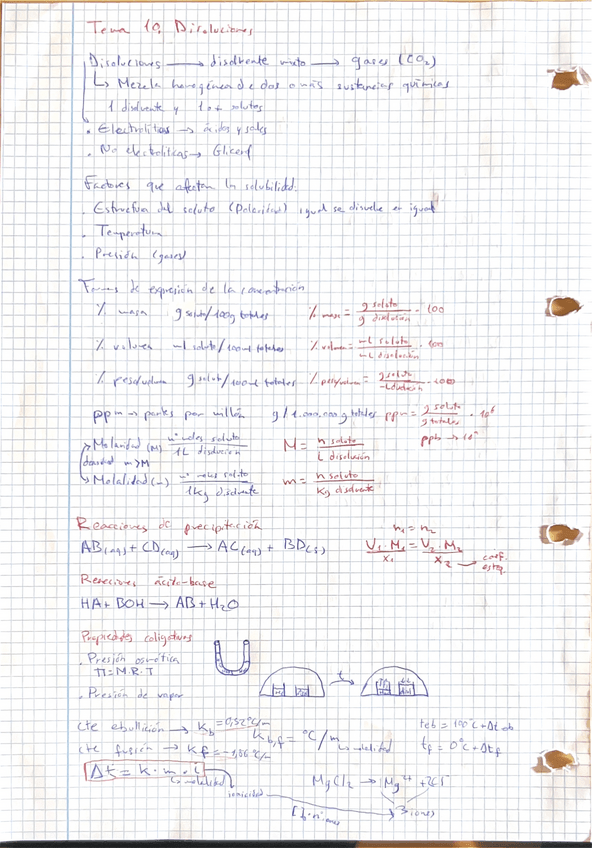 Tema 10. Disoluciones
Disoluciones → disolvente mixto → gases (CO₂)
↳ Mezcla homogénea de dos o más sustancias químicas
1 disolvente y 1 o + solutos
· Electrolitos → ácidos y sales
· No electrolitos →
Factores que afectan la solubilidad:
· Estructura del soluto (Polaridad) igual se disuelve en igual
· Temperatura
· Presión (gases)
Formas de expresión de la concentración
% masa g soluto/100g totales % masa = g soluto / g disolución · 100
% volumen ml soluto/100ml totales % volumen = mL soluto / mL disolución · 100
% peso/volumen g soluto/100ml totales % peso/volumen = g soluto / mL disolución · 100
ppm → partes por millón g/1.000.000 g totales ppm = g soluto / g totales · 10⁶
ppb →
Molaridad (M) nº moles soluto / 1L disolución M = n soluto / L disolución
densidad m → M
Molalidad (m) nº moles soluto / 1Kg disolvente m = n soluto / Kg disolvente
Reacciones de precipitación n₁ = n₂
AB(aq) + CD(aq) → AC(aq) + BD(s) V₁·M₁ / x₁ = V₂·M₂ / x₂ → coef. esteq.
Reacciones ácido-base
HA + BOH → AB + H₂O
Propiedades coligativas
· Presión osmótica
π = M·R·T
· Presión de vapor
cte ebullición → Kb = 0,52 °C/m Kb,f = °C/m teb = 100°C + Δteb
↳ molalidad
cte fusión → Kf = -1,86 °C/m tf = 0°C + Δtf
Δt = k · m · i
↳ molalidad
MgCl₂ → 1Mg²⁺ + 2Cl⁻
3 iones